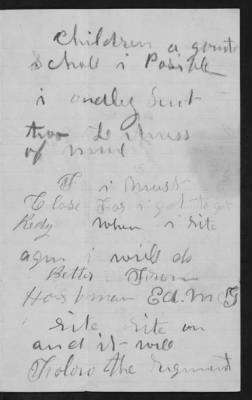 children a
Schall i Posible
i onely Sent
two
of mind
i must
Close for i got to get
Redy when i rite
agin i will do
Better From
Ed. M
rite rite on
and it will
Folow the regment